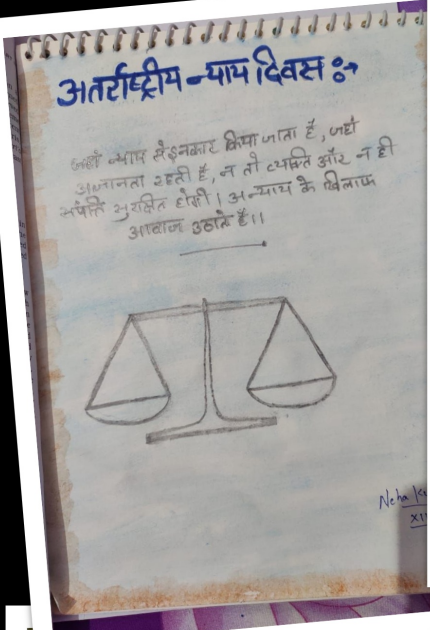 अतर्राष्ट्रीय न्याय दिवस :→
जहाँ न्याय से इनकार किया जाता है, जहाँ
अज्ञानता रहती है, न तो व्यक्ति और न ही
संपत्ति सुरक्षित होगी। अन्याय के खिलाफ
आवाज उठाते है।।
Neha
XI